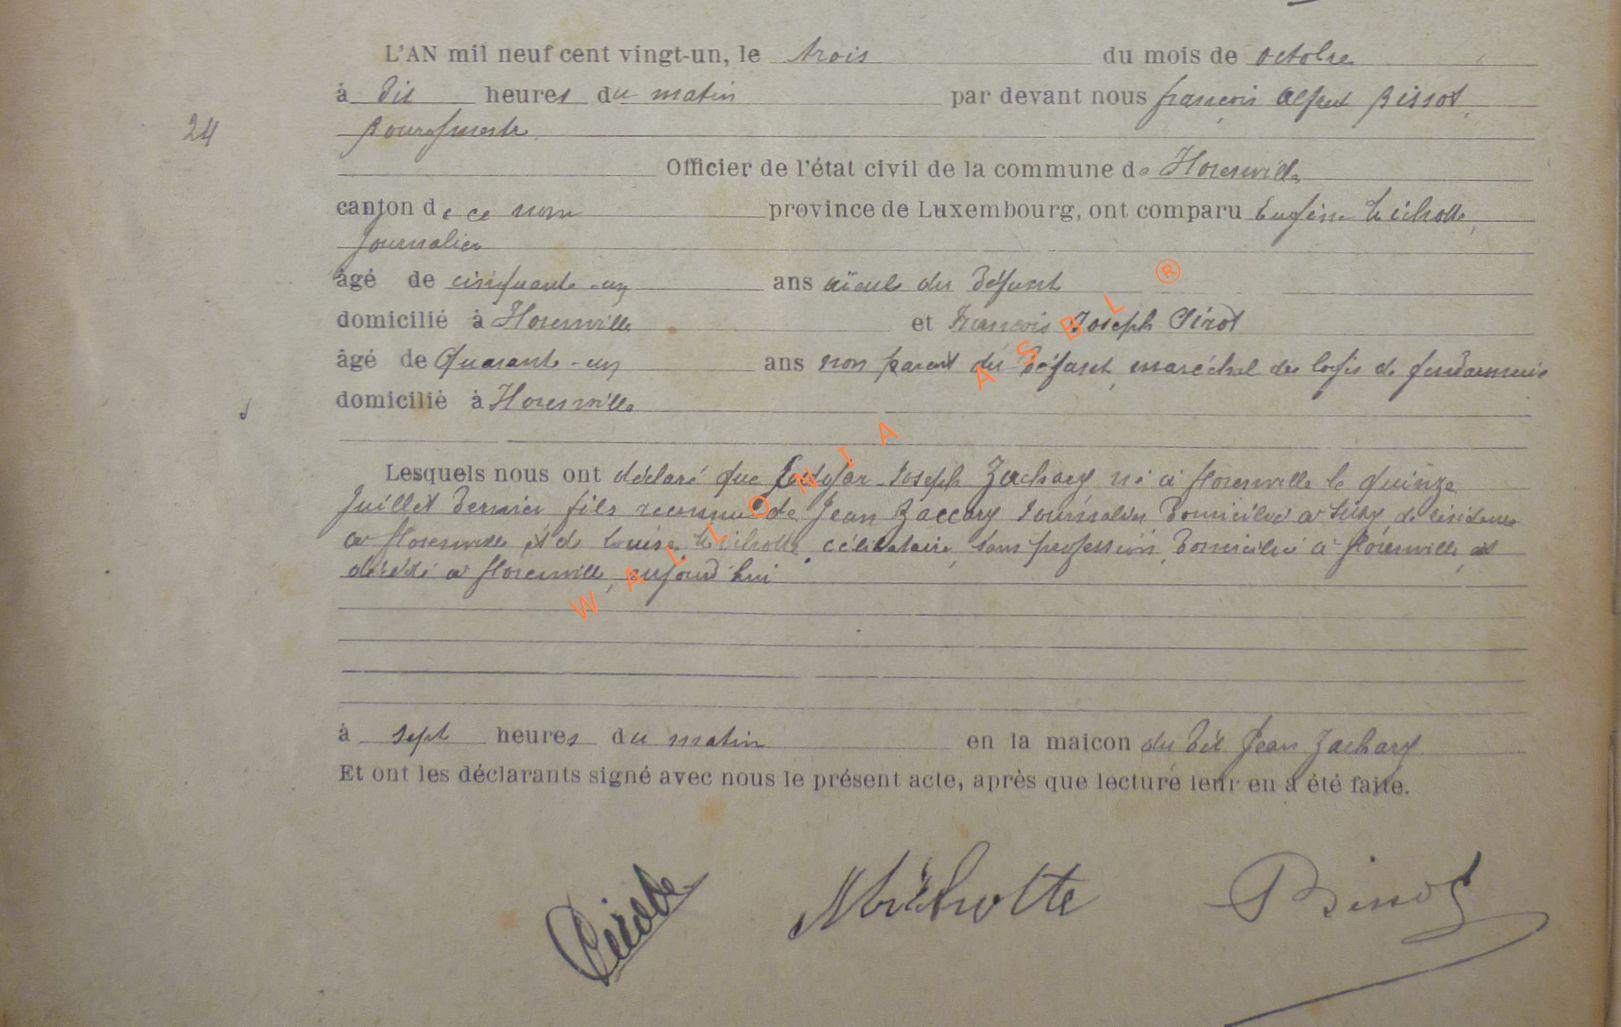 L'AN mil neuf cent vingt-un, le trois du mois de octobre
à dix heures du matin par devant nous françois Alfred Bissot,
24
Bourgmestre
Officier de l'état civil de la commune de Florenville
canton de ce nom province de Luxembourg, ont comparu Eugène Michotte,
journalier
âgé de cinquante-un ans aïeul du défunt
domicilié à Florenville et François Joseph Pirot
âgé de Quarante-un ans non parent du défunt, maréchal des logis de gendarmerie
domicilié à Florenville
Lesquels nous ont déclaré que Joseph Zachary né à florenville le quinze
Juillet dernier fils reconnu de Jean Zaccary Journalier domicilié à de résidence
à florenville et de Louise Michotte, célibataire, sans profession, domiciliée à florenville, est
décédé à florenville, aujourd'hui
à sept heures du matin en la maicon du dit Jean Zachary
Et ont les déclarants signé avec nous le présent acte, après que lecture leur en a été faite.
Michotte Bissot
WALLONIA ASBL ®